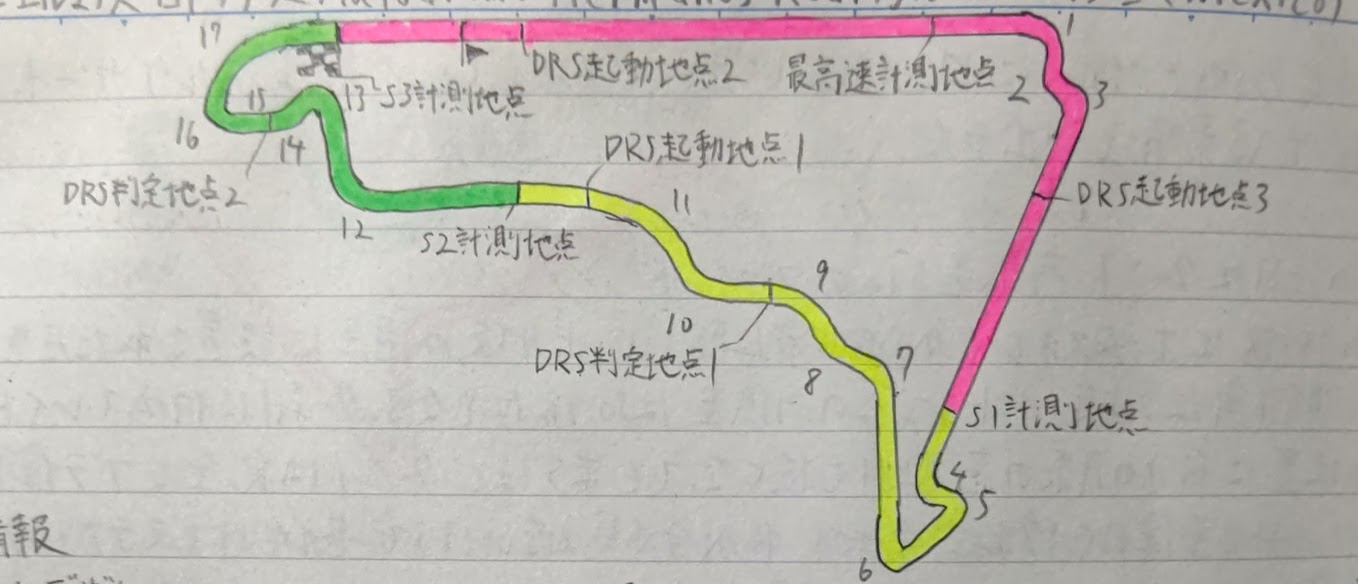 17
1
DRS起動地点2
最高速計測地点
2
3
15
13
S3計測地点
16
14
DRS起動地点1
DRS判定地点2
11
DRS起動地点3
12
S2計測地点
9
10
DRS判定地点1
7
8
S1計測地点
4
5
6
情報